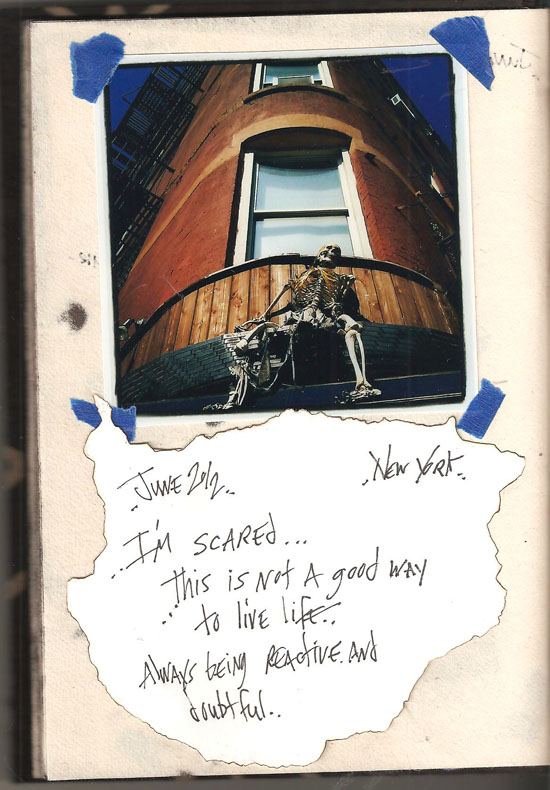 June 2012..
.New York.
..I'm scared...
this is not a good way
...to live life..
Always being reactive.and
doubtful..